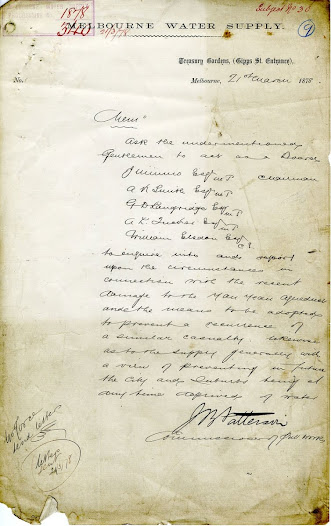 1878
340
21/3/78
Subject No 30
MELBOURNE WATER SUPPLY.
Treasury Gardens, (Gipps St. Entrance),
No.
Melbourne, 21st March 1878
Memo
Ask the undermentioned
Gentlemen to act as a Board
J Munro Esq MP Chairman
A K Smith Esq MP
F D Langridge Esq MP
A L Tucker Esq MP
William Elsdon Esq C.E.
to enquire into and report
upon the circumstances in
connection with the recent
damage to the Yan Yean Aqueduct
and the means to be adopted
to prevent a recurrence of
a similar casualty likewise
as to the supply generally with
a view of preventing in future
the City and Suburbs being at
any time deprived of water
J B Patterson
Commissioner of Pub Works